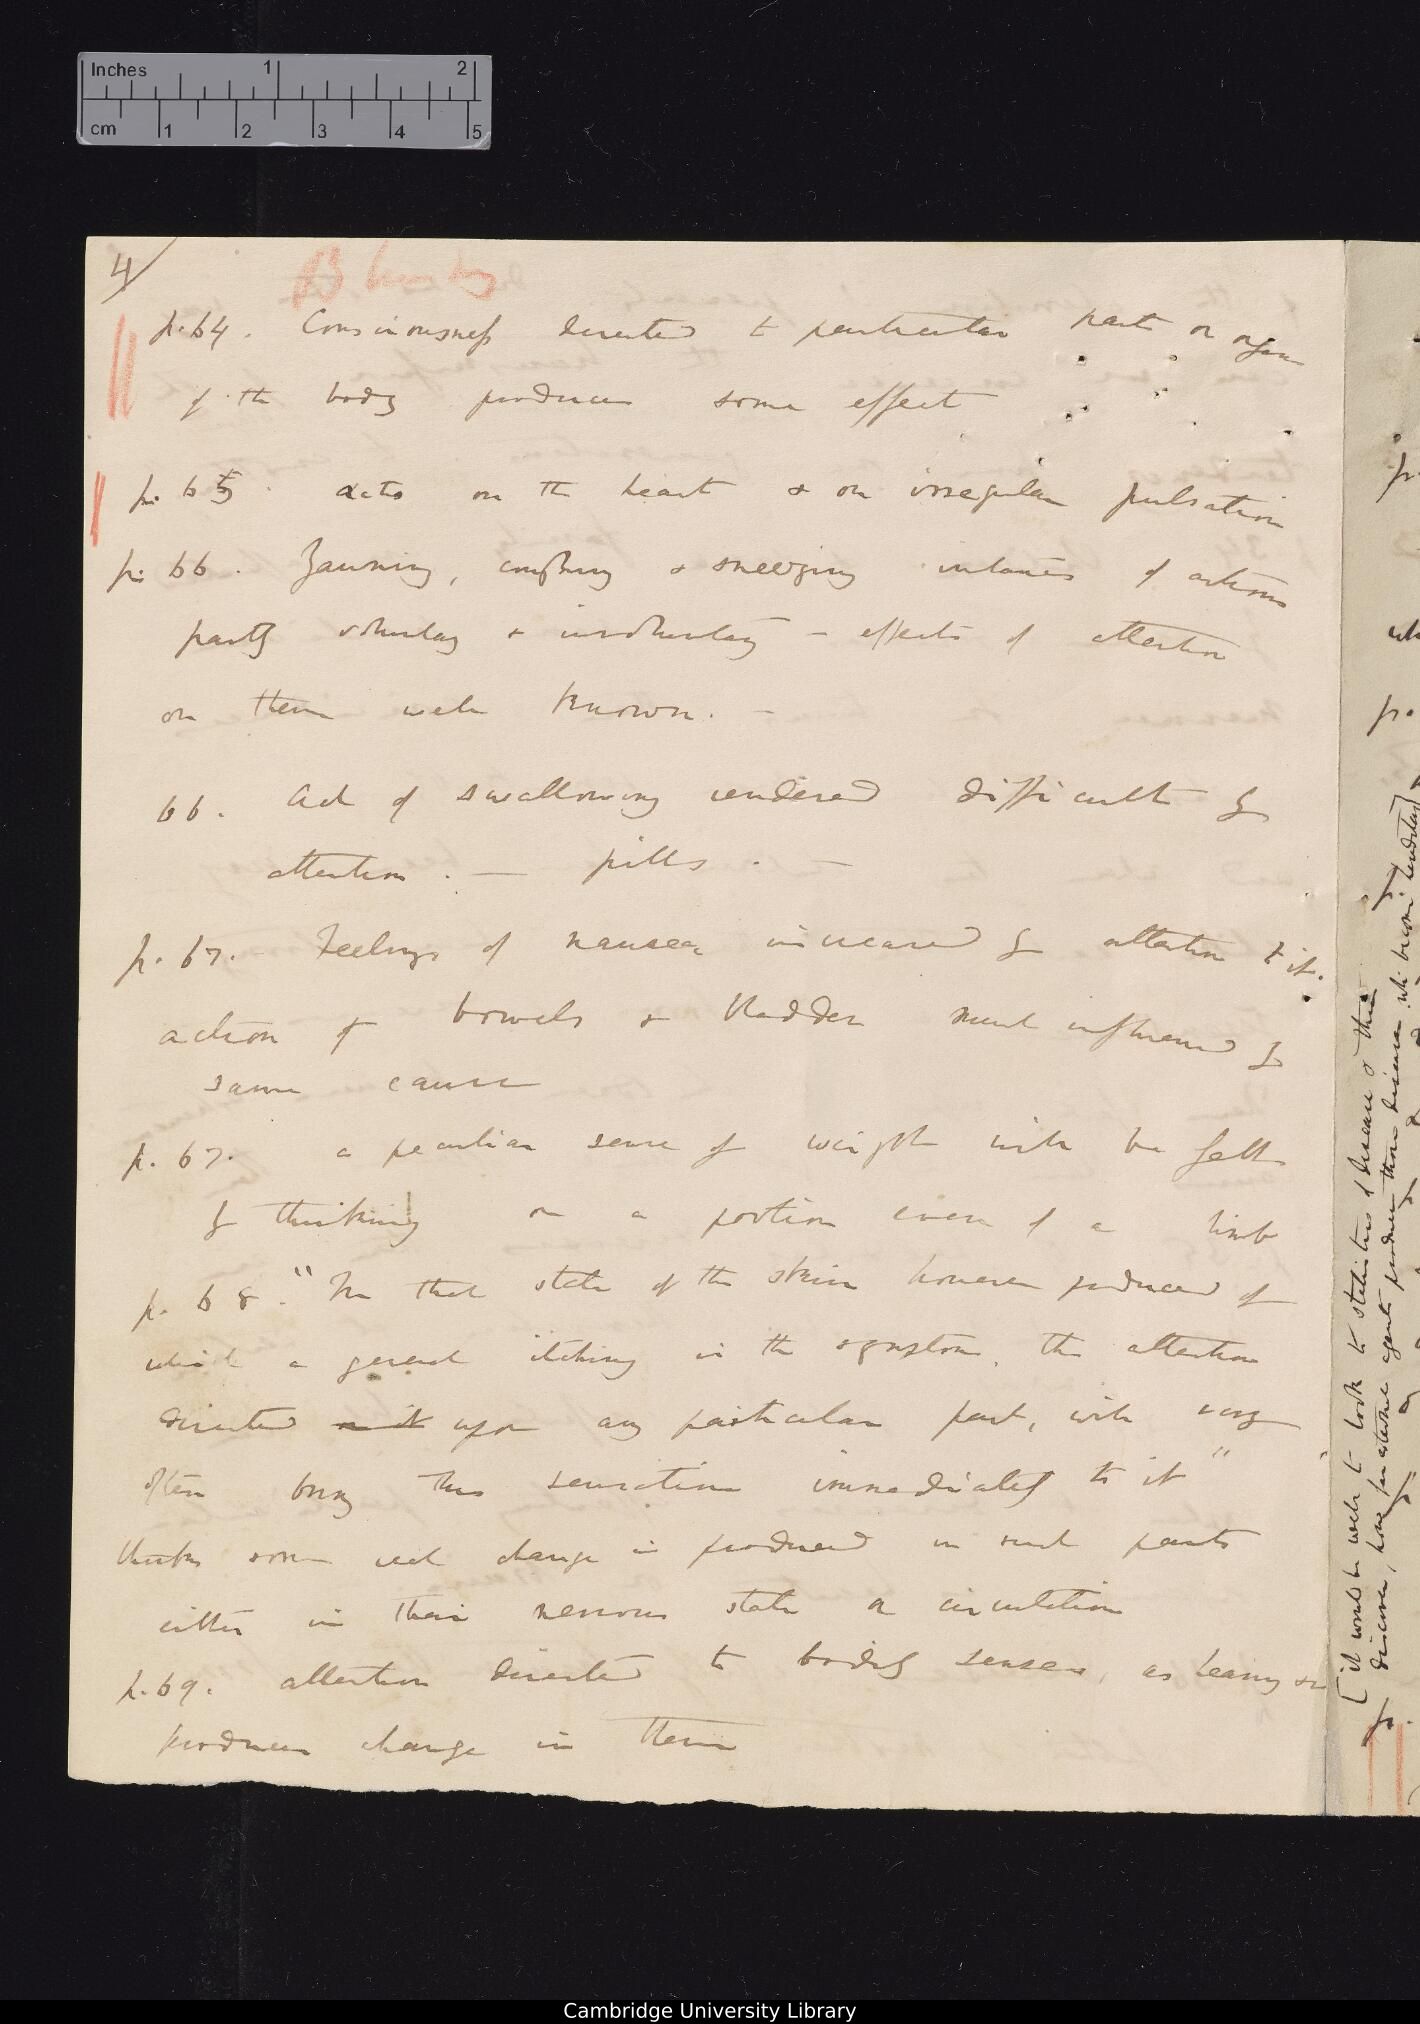 Inches 1 2
cm 1 2 3 4 5
4/
Blushing
p. 64. Consciousness directed to particular part or organ
of the body produces some effect
p. 65. acts on the heart & on irregular pulsation
p. 66. Yawning, coughing & sneezing instances of actions
partly voluntary & involuntary – effects of attention
on them well known. –
66. Act of swallowing rendered difficult by
attention. — pills. —
p. 67. Feelings of nausea increased by attention to it.
action of bowels & bladder much influenced by
same cause
p. 67. a peculiar sense of weight will be felt
by thinking on a portion even of a limb
p. 68. "In that state of the skin however produced of
which a general itching is the symptom, the attention
directed upon any particular part, will very
often bring this sensation immediately to it"
thinks some real change is produced in such parts
either in their nervous state or circulation
p. 69. attention directed to bodily senses, as hearing &c
produces change in them
[it would be well to look to statistics of disease & then
discover, how far external agents produce those diseases wh: become hereditary]
p.
wh
p.
p.
Cambridge University Library